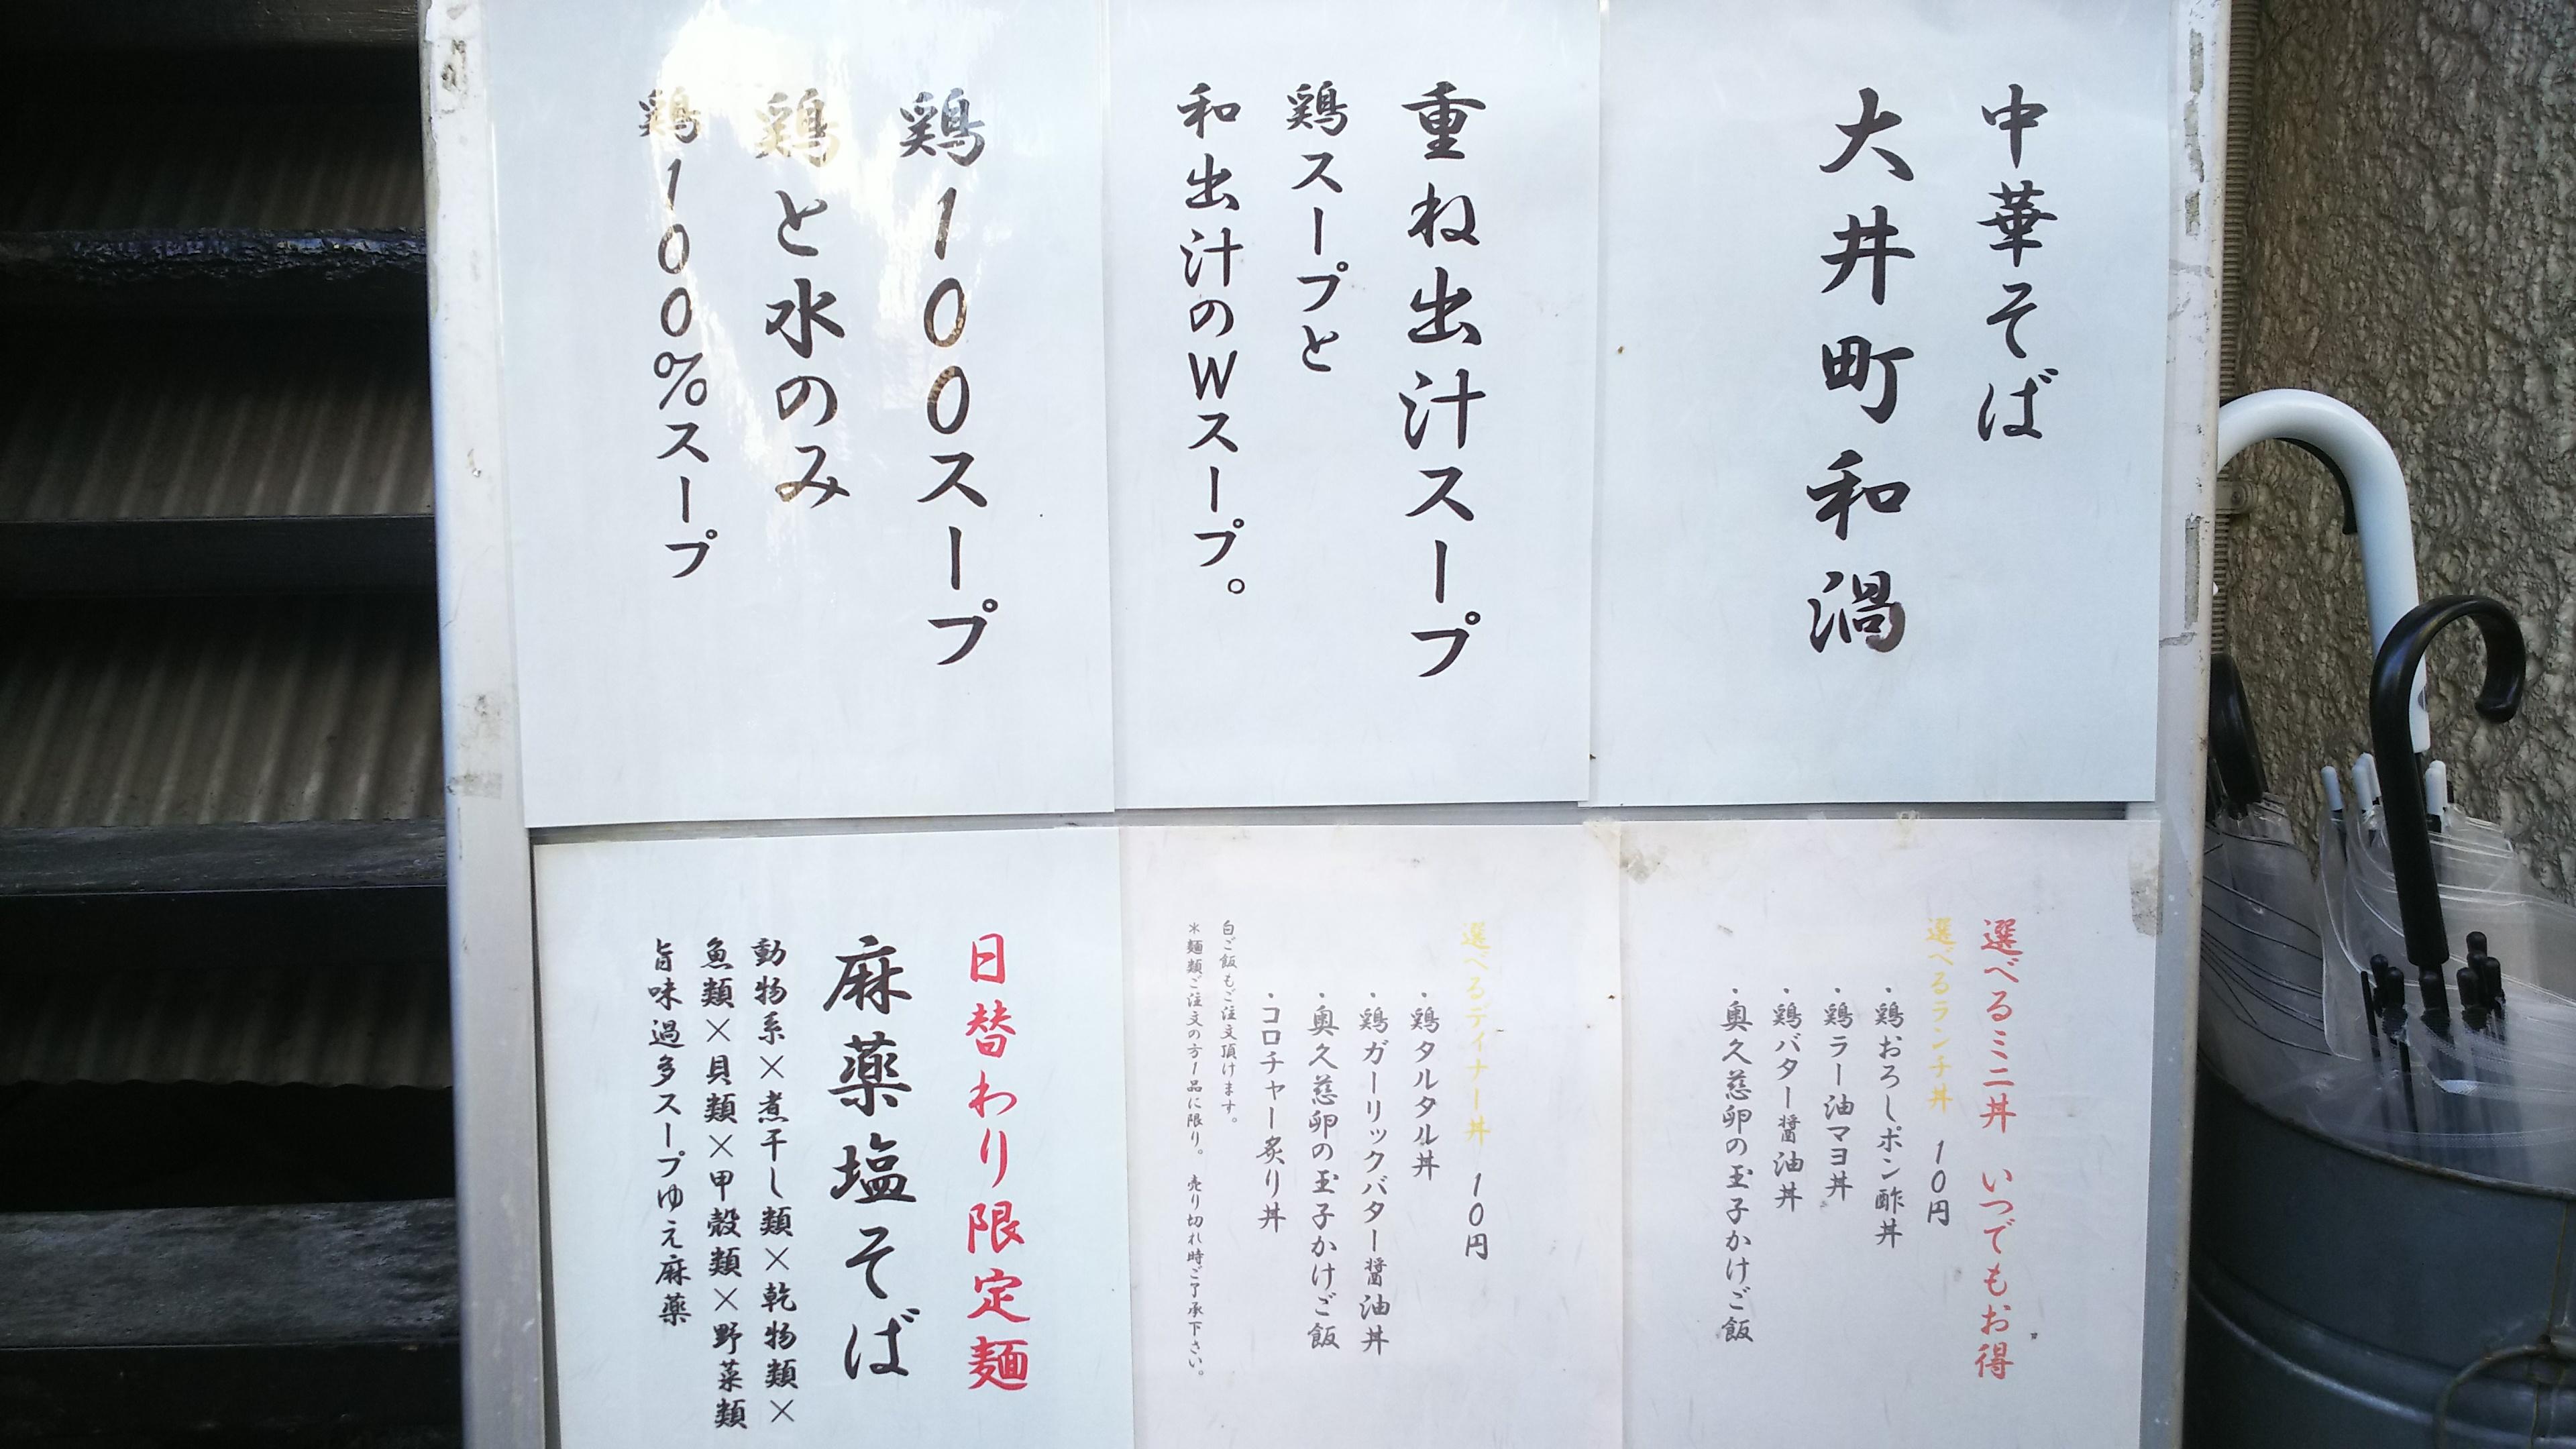 中華そば
大井町和渦
重ね出汁スープ
鶏スープと
和出汁のWスープ。
鶏100スープ
鶏と水のみ
鶏100%スープ
選べるミニ丼 いつでもお得
選べるランチ丼 10円
・鶏おろしポン酢丼
・鶏ラー油マヨ丼
・鶏バター醤油丼
・奥久慈卵の玉子かけご飯
選べるディナー丼 10円
・鶏タルタル丼
・鶏ガーリックバター醤油丼
・奥久慈卵の玉子かけご飯
・コロチャー炙り丼
白ご飯もご注文頂けます。
*麺類ご注文の方1品に限り。 売り切れ時ご了承下さい。
日替わり限定麺
麻薬塩そば
動物系×煮干し類×乾物類×
魚類×貝類×甲殻類×野菜類
旨味過多スープゆえ麻薬